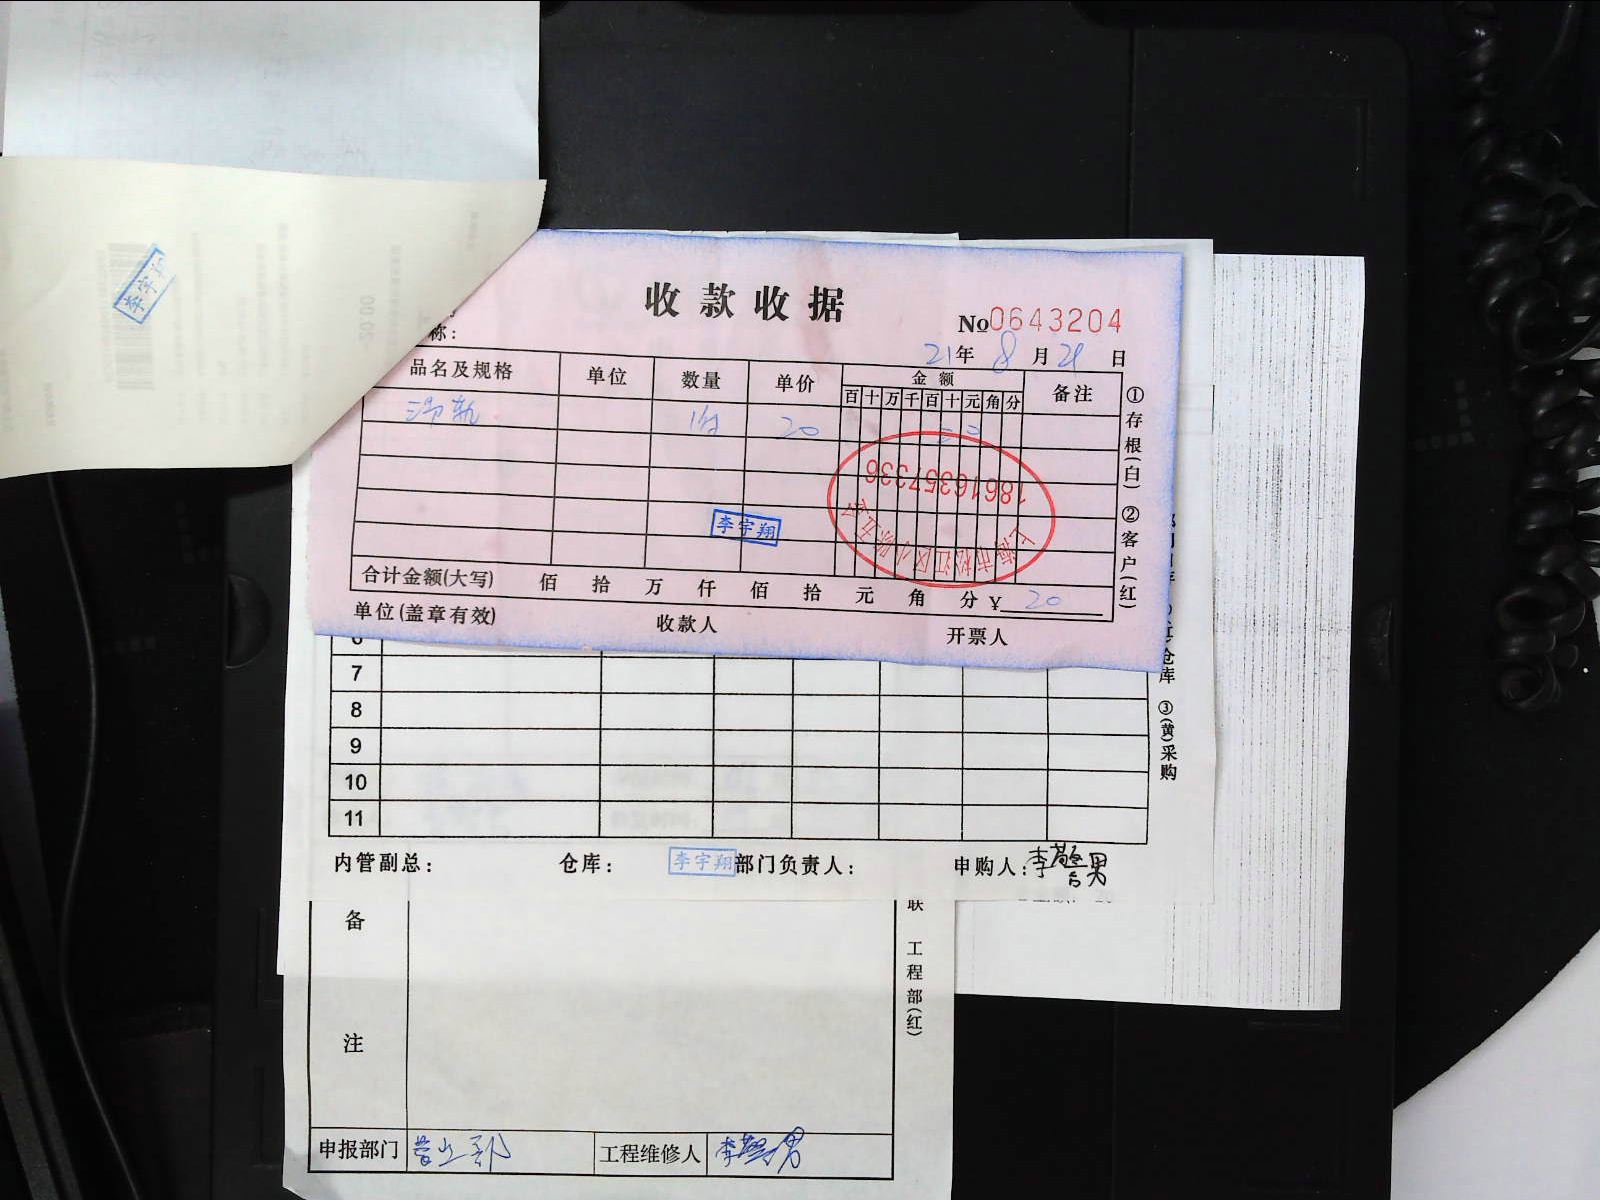 收款收据
No0643204
称:
21年8月21日
品名及规格 单位 数量 单价 金额 备注
百十万千百十元角分
滑轨 1付 20 20
李宇翔
18616357336
上海市松江区小陈五金
合计金额(大写) 佰 拾 万 仟 佰 拾 元 角 分 ¥ 20
单位(盖章有效) 收款人 开票人
①存根(白) ②客户(红)
李宇翔
20.00
6
7
8
9
10
11
仓库 ③(黄)采购
内管副总: 仓库: 李宇翔 部门负责人: 申购人:李馨男
备注
联 工程部(红)
申报部门 营业部 工程维修人 李馨男